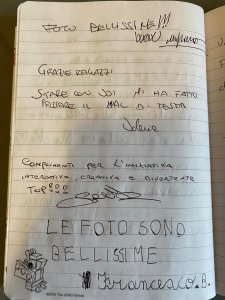 FOTO BELLISSIME!!!
GRAZIE RAGAZZI
STARE CON VOI MI HA FATTO
PASSARE IL MAL DI TESTA
COMPLIMENTI PER L'INIZIATIVA
INTERATTIVA, CREATIVA E DIVERTENTE
TOP!!!
LE FOTO SONO
BELLISSIME
Francesco.B.
The LEGO Group.